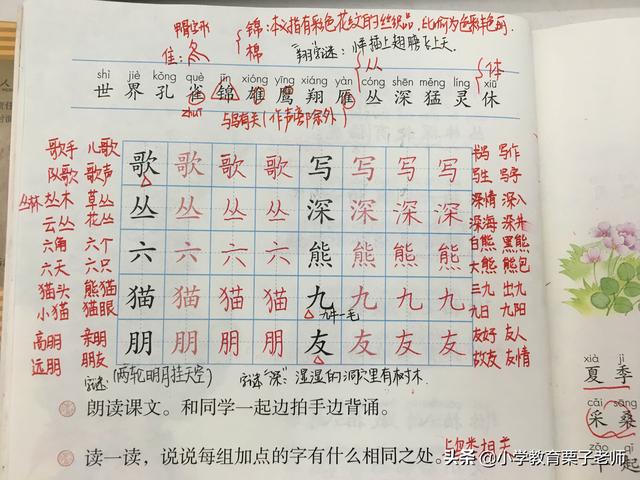 甲骨出形
锦:本义指有彩色花纹的丝织品,比喻为色彩鲜丽。
佳:
棉
"翔"字谜:羊插上翅膀飞上天。
从
体
shì jiè kǒng què jǐn xióng yīng xiáng yàn cóng shēn měng líng xiū
世界孔雀锦雄鹰翔雁丛深猛灵休
zhuī
与鸟有关(作声旁除外)
歌手 儿歌 歌 歌 歌 歌 写 写 写 写 书写 写作
队歌 歌声 写生 写字
丛林 丛木 草丛 丛 丛 丛 丛 深 深 深 深 深情 深入
云丛 花丛 深海 深井
六角 六个 六 六 六 六 熊 熊 熊 熊 白熊 黑熊
六天 六只 大熊 熊包
猫头 熊猫 猫 猫 猫 猫 九 九 九 九 三九 出九
小猫 猫眼 九牛一毛 九日 九阳
高朋 亲朋 朋 朋 朋 朋 友 友 友 友 友好 友人
远朋 朋友 故友 友情
字谜:(两轮明月挂天空) 字谜"深":湿湿的洞穴里有树木
朗读课文。和同学一起边拍手边背诵。
读一读,说说每组加点的字有什么相同之处。
与鸟类相关
xià jì
夏季
cǎi sāng
采桑
zǎo qǐ
早起
头条@小学教育栗子老师